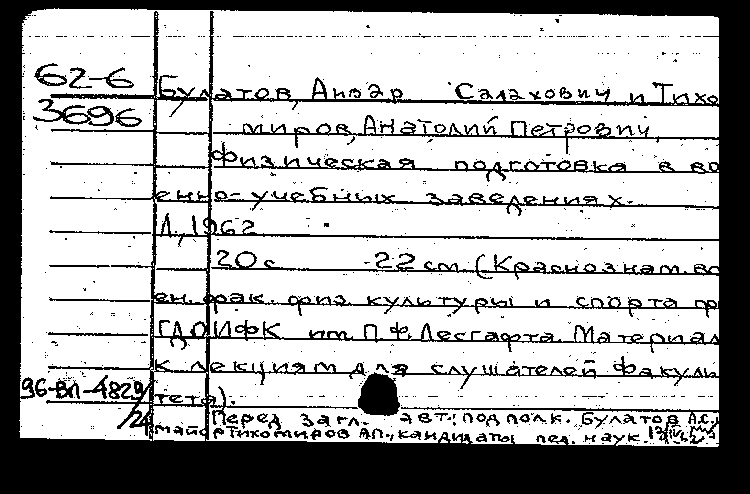 62-6
3696
Булатов, Анвар Салахович и Тихо
миров, Анатолий Петрович,
Физическая подготовка в во
енно-учебных заведениях.
Л., 1962
20 с 22 см. (Краснознам. во
ен. фак. физ культуры и спорта при
ГДОИФК им. П.Ф. Лесгафта. Материал
к лекциям для слушателей факуль
96-ВЛ-4829/ тета).
/24 Перед загл. авт.: подполк. Булатов А.С.,
майор Тихомиров А.П., кандидаты пед. наук.